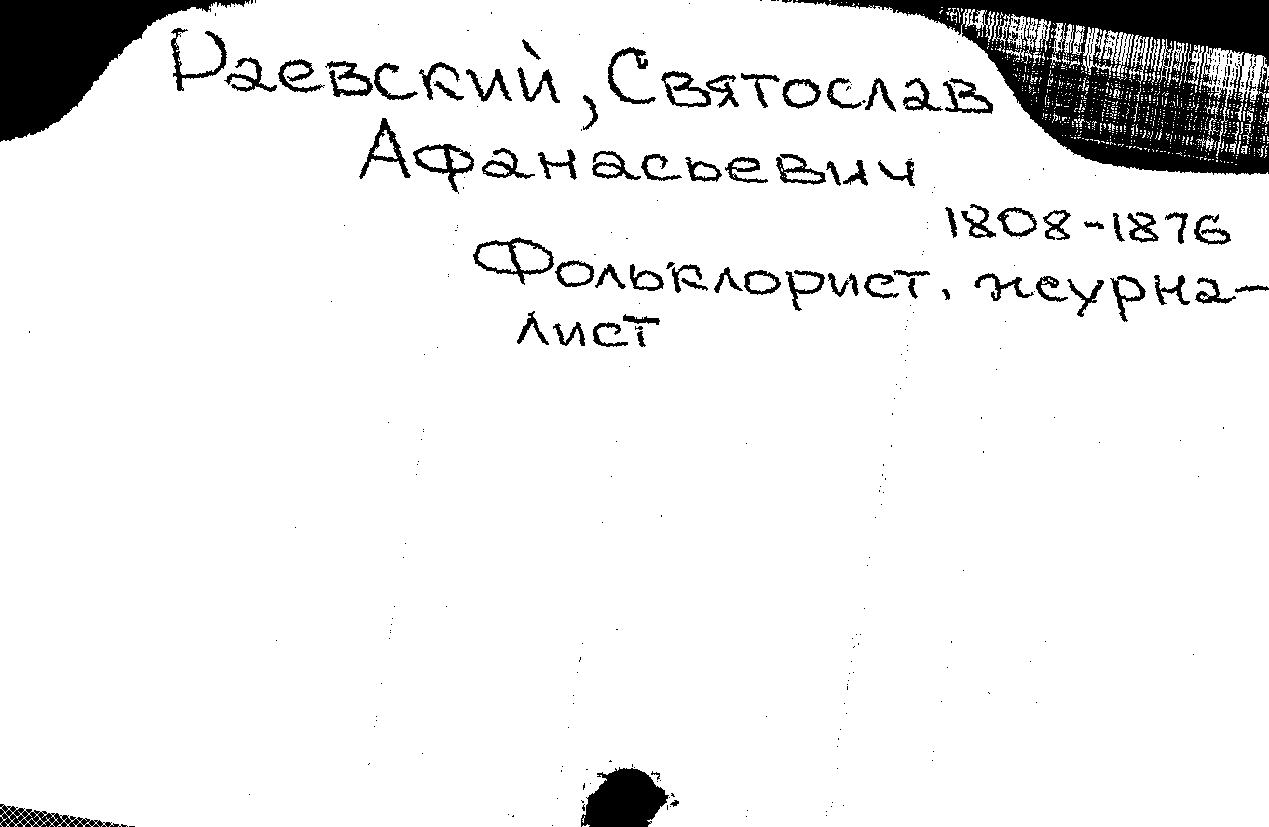 Раевский, Святослав
Афанасьевич
1808-1876
Фольклорист, журна-
лист